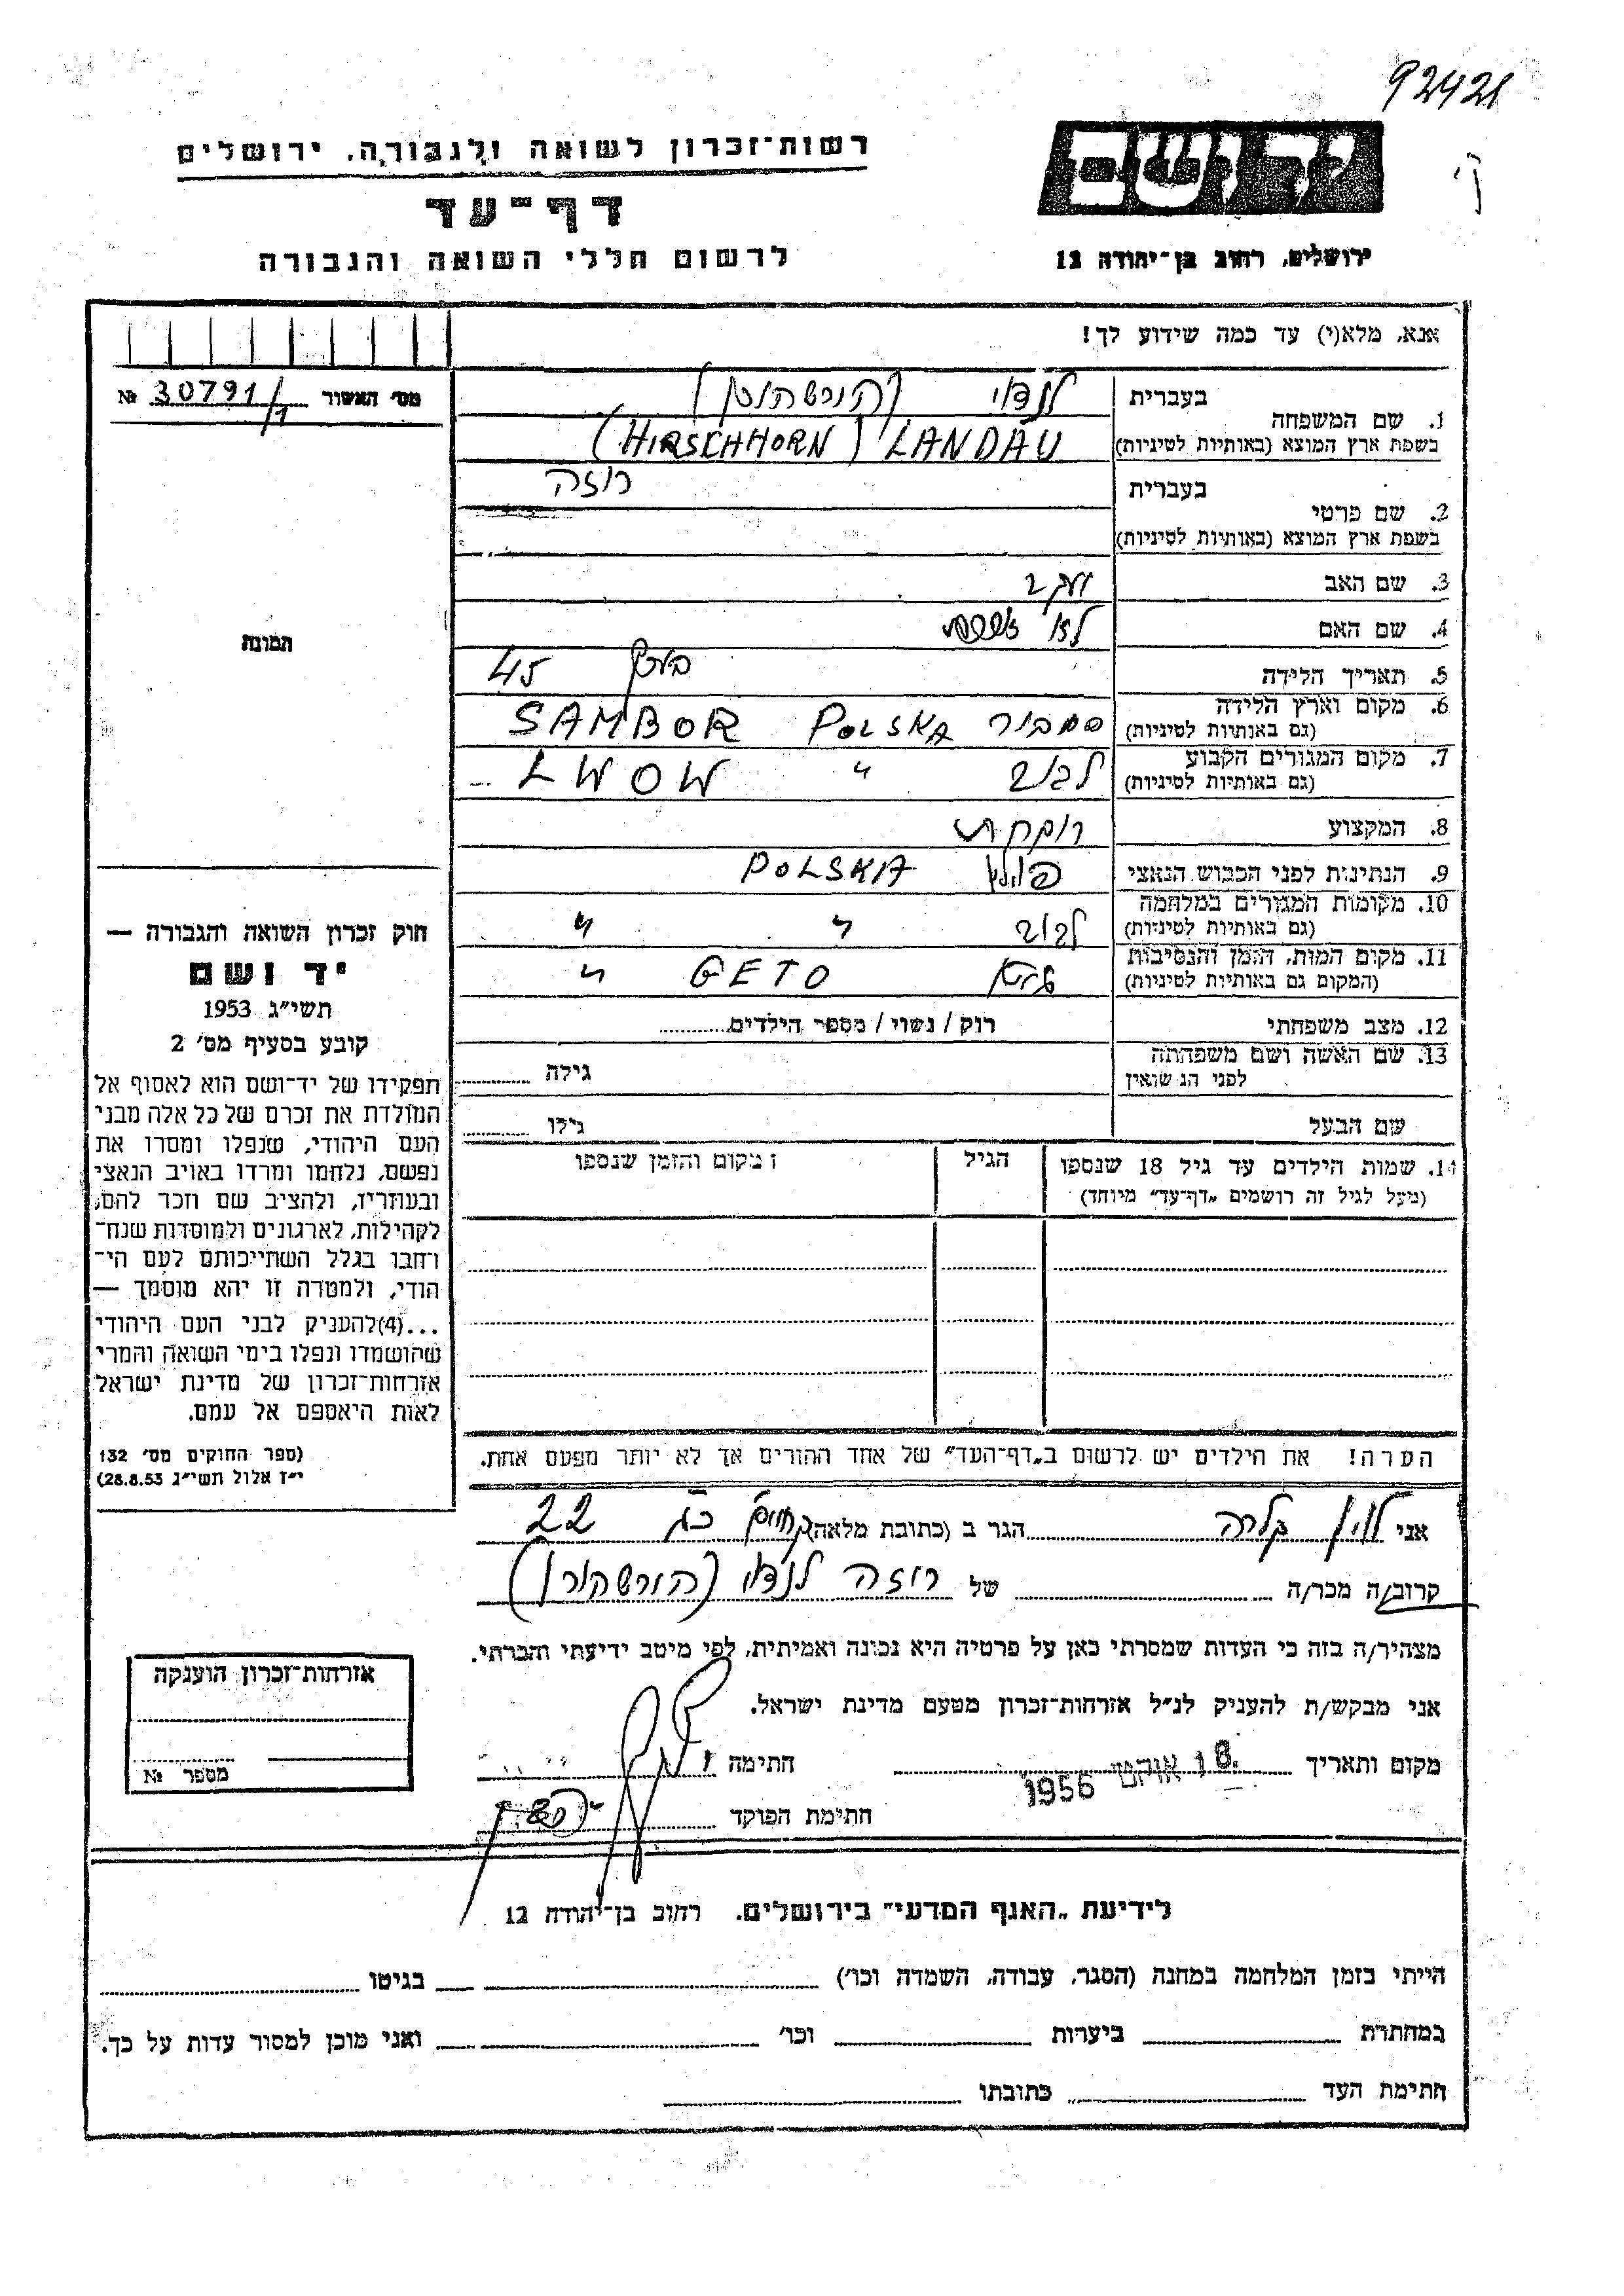 92421
יד ושם
רשות־זכרון לשואה ולגבורה, ירושלים
דף־עד
לרשום חללי השואה והגבורה
ירושלים, רחוב בן־יהודה 12
אנא, מלא(י) עד כמה שידוע לך!
מס׳ האשור 30791/1 №
1. שם המשפחה
בעברית לנדאו (הירשהורן)
בשפת ארץ המוצא (באותיות לטיניות) LANDAU (HIRSCHHORN)
2. שם פרטי
בעברית רוזה
בשפת ארץ המוצא (באותיות לטיניות)
3. שם האב יעקב
4. שם האם
5. תאריך הלידה 45
6. מקום וארץ הלידה
(גם באותיות לטיניות) סמבור POLSKA SAMBOR
7. מקום המגורים הקבוע
(גם באותיות לטיניות) לבוב " LWOW
8. המקצוע רוקחת
9. הנתינות לפני הכבוש הנאצי פולין POLSKA
10. מקומות המגורים במלחמה
(גם באותיות לטיניות) לבוב " "
11. מקום המות, הזמן והנסיבות
(המקום גם באותיות לטיניות) GETO "
12. מצב משפחתי רוק / נשוי / מספר הילדים
13. שם האשה ושם משפחתה
לפני הנשואין גילה
שם הבעל גילו
14. שמות הילדים עד גיל 18 שנספו הגיל מקום והזמן שנספו
(מעל לגיל זה רושמים „דף־עד״ מיוחד)
הערה! את הילדים יש לרשום ב„דף־העד״ של אחד ההורים אך לא יותר מפעם אחת.
תמונה
חוק זכרון השואה והגבורה —
יד ושם
תשי״ג 1953
קובע בסעיף מס׳ 2
תפקידו של יד־ושם הוא לאסוף אל
המולדת את זכרם של כל אלה מבני
העם היהודי, שנפלו ומסרו את
נפשם, נלחמו ומרדו באויב הנאצי
ובעוזריו, ולהציב שם וזכר להם,
לקהילות, לארגונים ולמוסדות שנח־
רחבו בגלל השתייכותם לעם הי־
הודי, ולמטרה זו יהא מוסמך —
...(4)להעניק לבני העם היהודי
שהושמדו ונפלו בימי השואה והמרי
אזרחות־זכרון של מדינת ישראל
לאות היאספם אל עמם.
(ספר החוקים מס׳ 132
י״ז אלול תשי״ג 28.8.53)
אני קלרה הגר ב (כתובת מלאה) 22
קרוב/ה מכר/ה של רוזה לנדאו (הירשהורן)
מצהיר/ה בזה כי העדות שמסרתי כאן על פרטיה היא נכונה ואמיתית, לפי מיטב ידיעתי והכרתי.
אני מבקש/ת להעניק לנ״ל אזרחות־זכרון מטעם מדינת ישראל.
מקום ותאריך 18. 1956 חתימה
חתימת הפוקד
אזרחות־זכרון הוענקה
מספר №
לידיעת „האגף המדעי״ בירושלים. רחוב בן־יהודה 12
הייתי בזמן המלחמה במחנה (הסגר, עבודה, השמדה וכו׳) בגיטו
במחתרת ביערות וכו׳ ואני מוכן למסור עדות על כך.
חתימת העד כתובתו